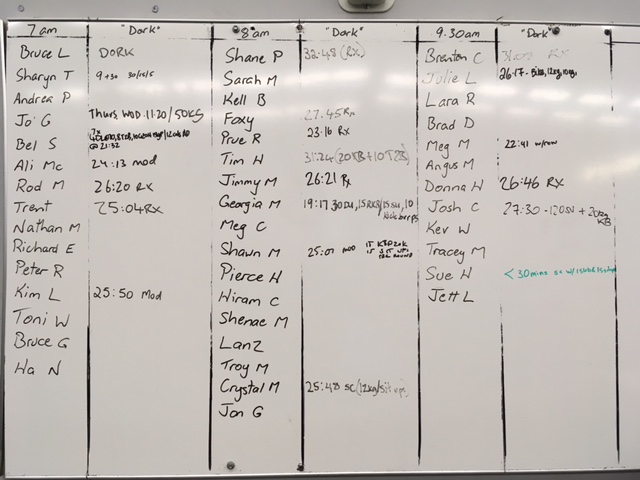 7am "Dork" 8am "Dork" 9.30am "Dork"
Bruce L DORK
Sharyn T 9+30 30/15/5
Andrea P
Jo G Thurs WOD 11:20/50KS
Bel S
@ 21:32
Ali Mc 24:13 mod
Rod M 26:20 RX
Trent 25:04 RX
Nathan M
Richard E
Peter R
Kim L 25:50 Mod
Toni W
Bruce G
Ha N
Shane P 32:48 (RX)
Sarah M
Kell B
Foxy 27.45 Rx
Prue R 23:16 RX
Tim H 31:24 (20KB+10T2B)
Jimmy M 26:21 Rx
Georgia M 19:17 30DU, 15 RKS/15 SU, 10
Meg C
Shawn M 25:01 MOD 15 KTE 20K
15 SIT UPS
Pierce H
Hiram C
Shenae M
Lanz
Troy M
Crystal M 25:48 sc (12kg/sit ups)
Jon G
Brenton C RX
Julie L 26:17
Lara R
Brad D
Meg M 22:41 w/row
Angus M
Donna H 26:46 RX
Josh C 27:30 - 120SU + 20kg
KB
Kev W
Tracey M
Sue H < 30mins sc
Jett L